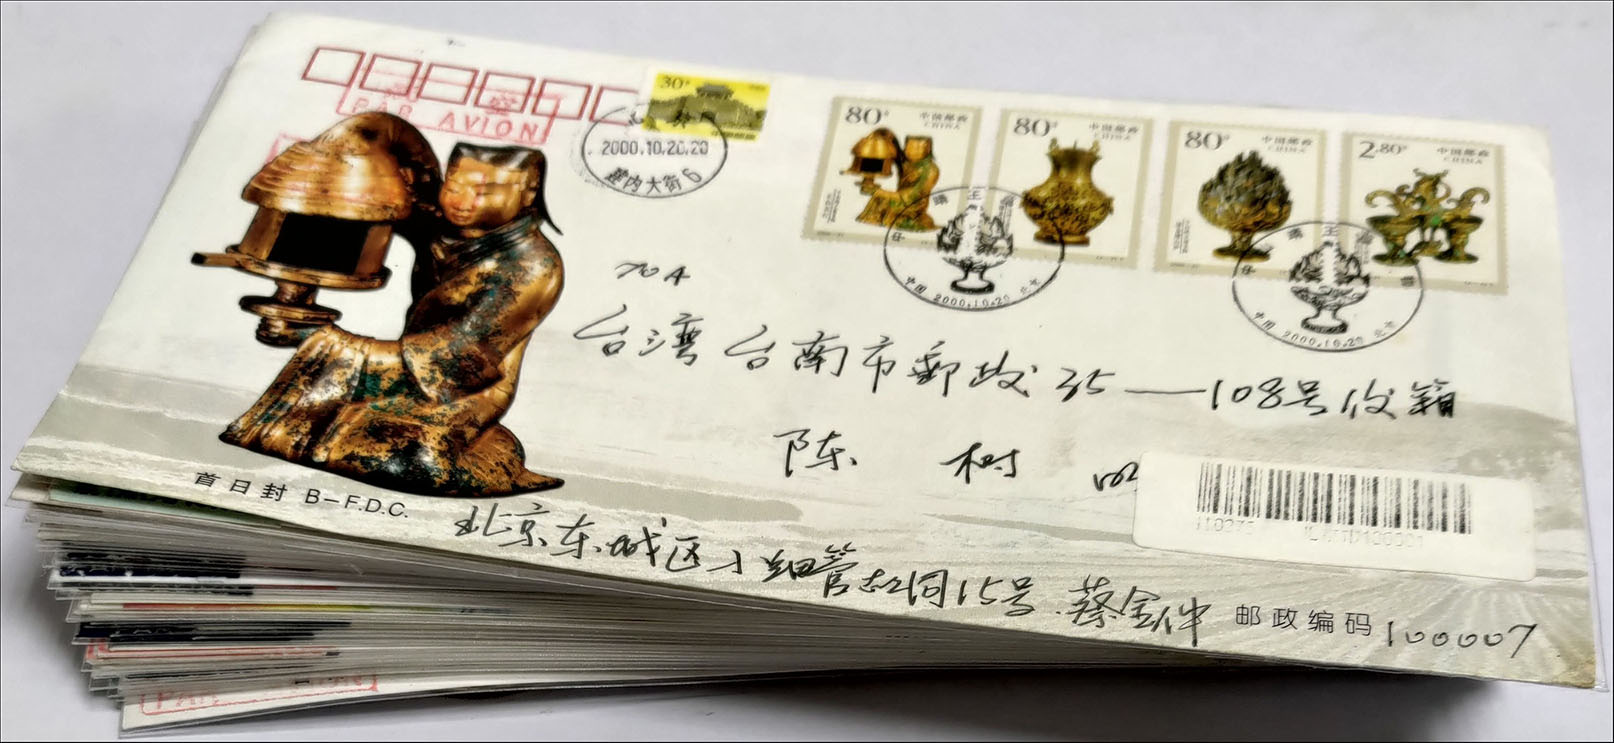 航空
PAR AVION
30分
北京
2000.10.20.20
建内大街6
80分 中国邮政 CHINA
80分 中国邮政 CHINA
80分 中国邮政 CHINA
2.80元 中国邮政 CHINA
中国 2000.10.20 北京
中国 2000.10.20 北京
704
台湾 台南市郵政35—108号信箱
陈 树
首日封 B-F.D.C.
北京东城区小细管胡同15号 蔡金
邮政编码 100007
PAR AVION